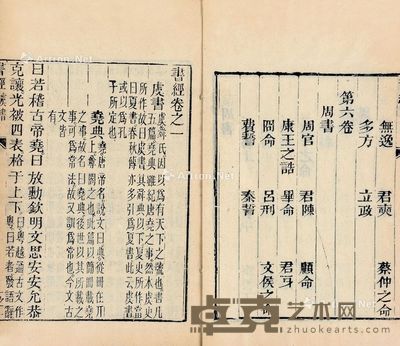 無逸 君奭 蔡仲之命
多方 立政
第六卷
周書
周官 君陳 顧命
康王之誥 畢命 君牙
冏命 呂刑 文侯之命
費誓 秦誓
書經卷之一
虞書 虞舜氏因以為有天下之號也書凡
五篇堯典雖紀唐堯之事然本虞史
所作故曰虞書其舜典以下夏史所作當
曰夏書春秋傳亦多引為夏書此云虞書
或以為孔
子所定也
堯典 堯唐帝名說文曰典從冊在丌
上尊閣之也此篇以簡冊載堯
之事故名曰堯典後世以其所載之
事可為常法故又訓為常也今文古
文皆
曰若稽古帝堯曰放勳欽明文思安安允恭
克讓光被四表格于上下 曰粤越通古文作
粤曰若者發語辭
艺术网
zhuokearts.com